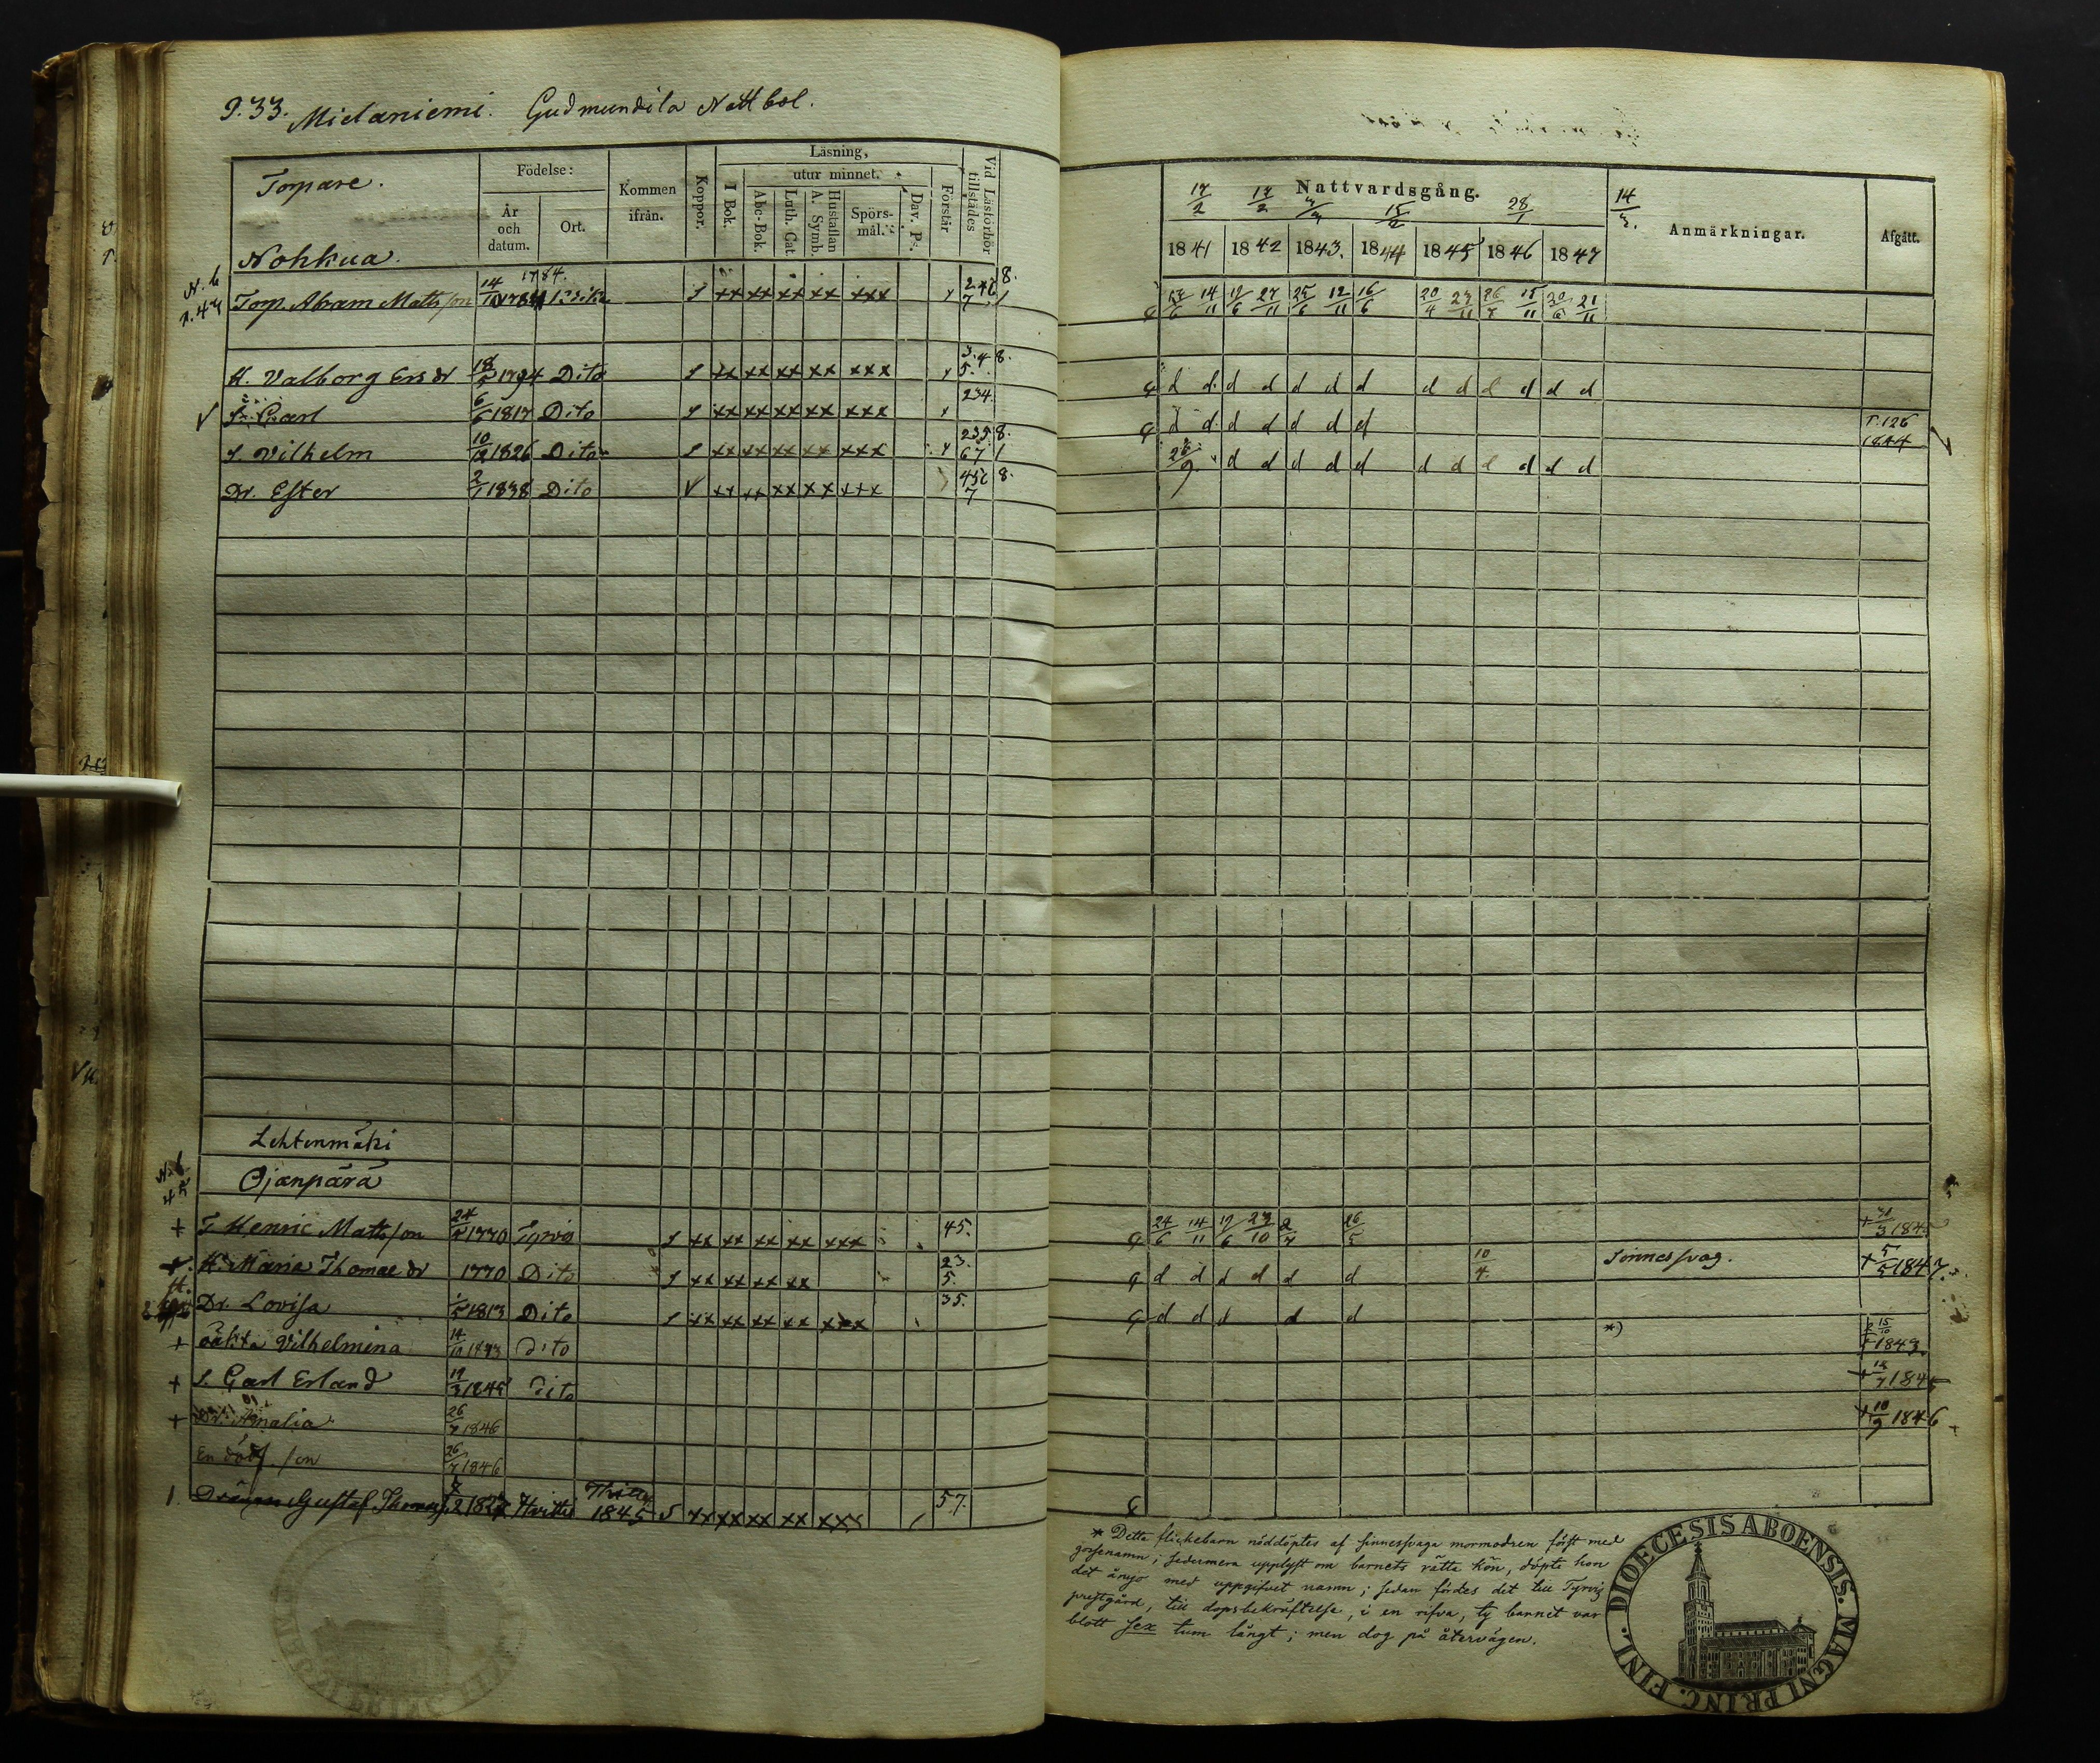 P. 33. Mielaniemi. Gudmundila Nattbol.
Torpare.
Nohkua.
Födelse:
År och datum.
Ort.
Kommen ifrån.
Koppor.
Läsning,
I Bok.
utur minnet.
Abc-Bok.
Luth. Cat.
Hustaflan A. Symb.
Spörs-mål.
Dav. Ps.
Förstår
Vid Läsförhör tillstädes
Nattvardsgång.
17/2 17/2 28/1 14/3.
1841 1842 1843. 1844 1845 1846 1847
Anmärkningar.
Afgått.
Torp. Abram Matsson 14/10 1784
24/6 14/11 12/6 27/11 25/6 12/11 16/6 20/4 23/11 26/7 15/11 20/6 21/11
H. Valborg Ersdr 18/5 1794 Dito S xx xx xx xx xxx x 3.4 8. 5.
d d. d d d d d d d d d d d
S. Carl 6/6 1817 Dito S xx xx xx xx xxx x 234.
d d. d d d d d P. 126 1844
S. Vilhelm 10/12 1826 Dito S xx xx xx xx xxx x 235. 8. 67 1
26/9 d d d d d d d d d d d
Dr. Ester 2/1 1838 Dito V xx xx xx xx xxx 456 8. 7
Lehtenmäki
Ojanpärä
+ T Henric Matsson 24/5 1770 Tyrvis S xx xx xx xx xxx 45.
24/6 14/11 12/6 23/10 2/7 26/5 + 30/3 1845
H. Maria Thomaedr 1770 Dito S xx xx xx xx 23. 5.
d d d d d d 10/4 Sinnessvag. + 5/5 1847.
Dr. Lovisa 1/5 1813 Dito S xx xx xx xx xxx 35.
d d d d d
+ oäkta Vilhelmina 14/10 1843 Dito
*) + 15/10 1843.
+ S. Carl Erland 19/3 1845 Dito
+ 14/7 1845
+ Dr. Amalia 26/7 1846
+ 10/9 1846
En dödf. son 26/7 1846
1. Drängen Gustaf Thomass. 1827 Hvittis 1845 S xx xx xx xx xxx 57.
* Detta flickebarn nöddöptes af sinnessvaga mormodren först med
gossenamn; sedermera upplyst om barnets rätta kön, döpte hon
det ånyo med uppgifvet namn; sedan fördes det till Tyrvis
prestgård, till dopsbekräftelse, i en rifva, ty barnet var
blott sex tum långt; men dog på återvägen.
DIOECESIS ABOENSIS. MAGNI PRINC. FINL.